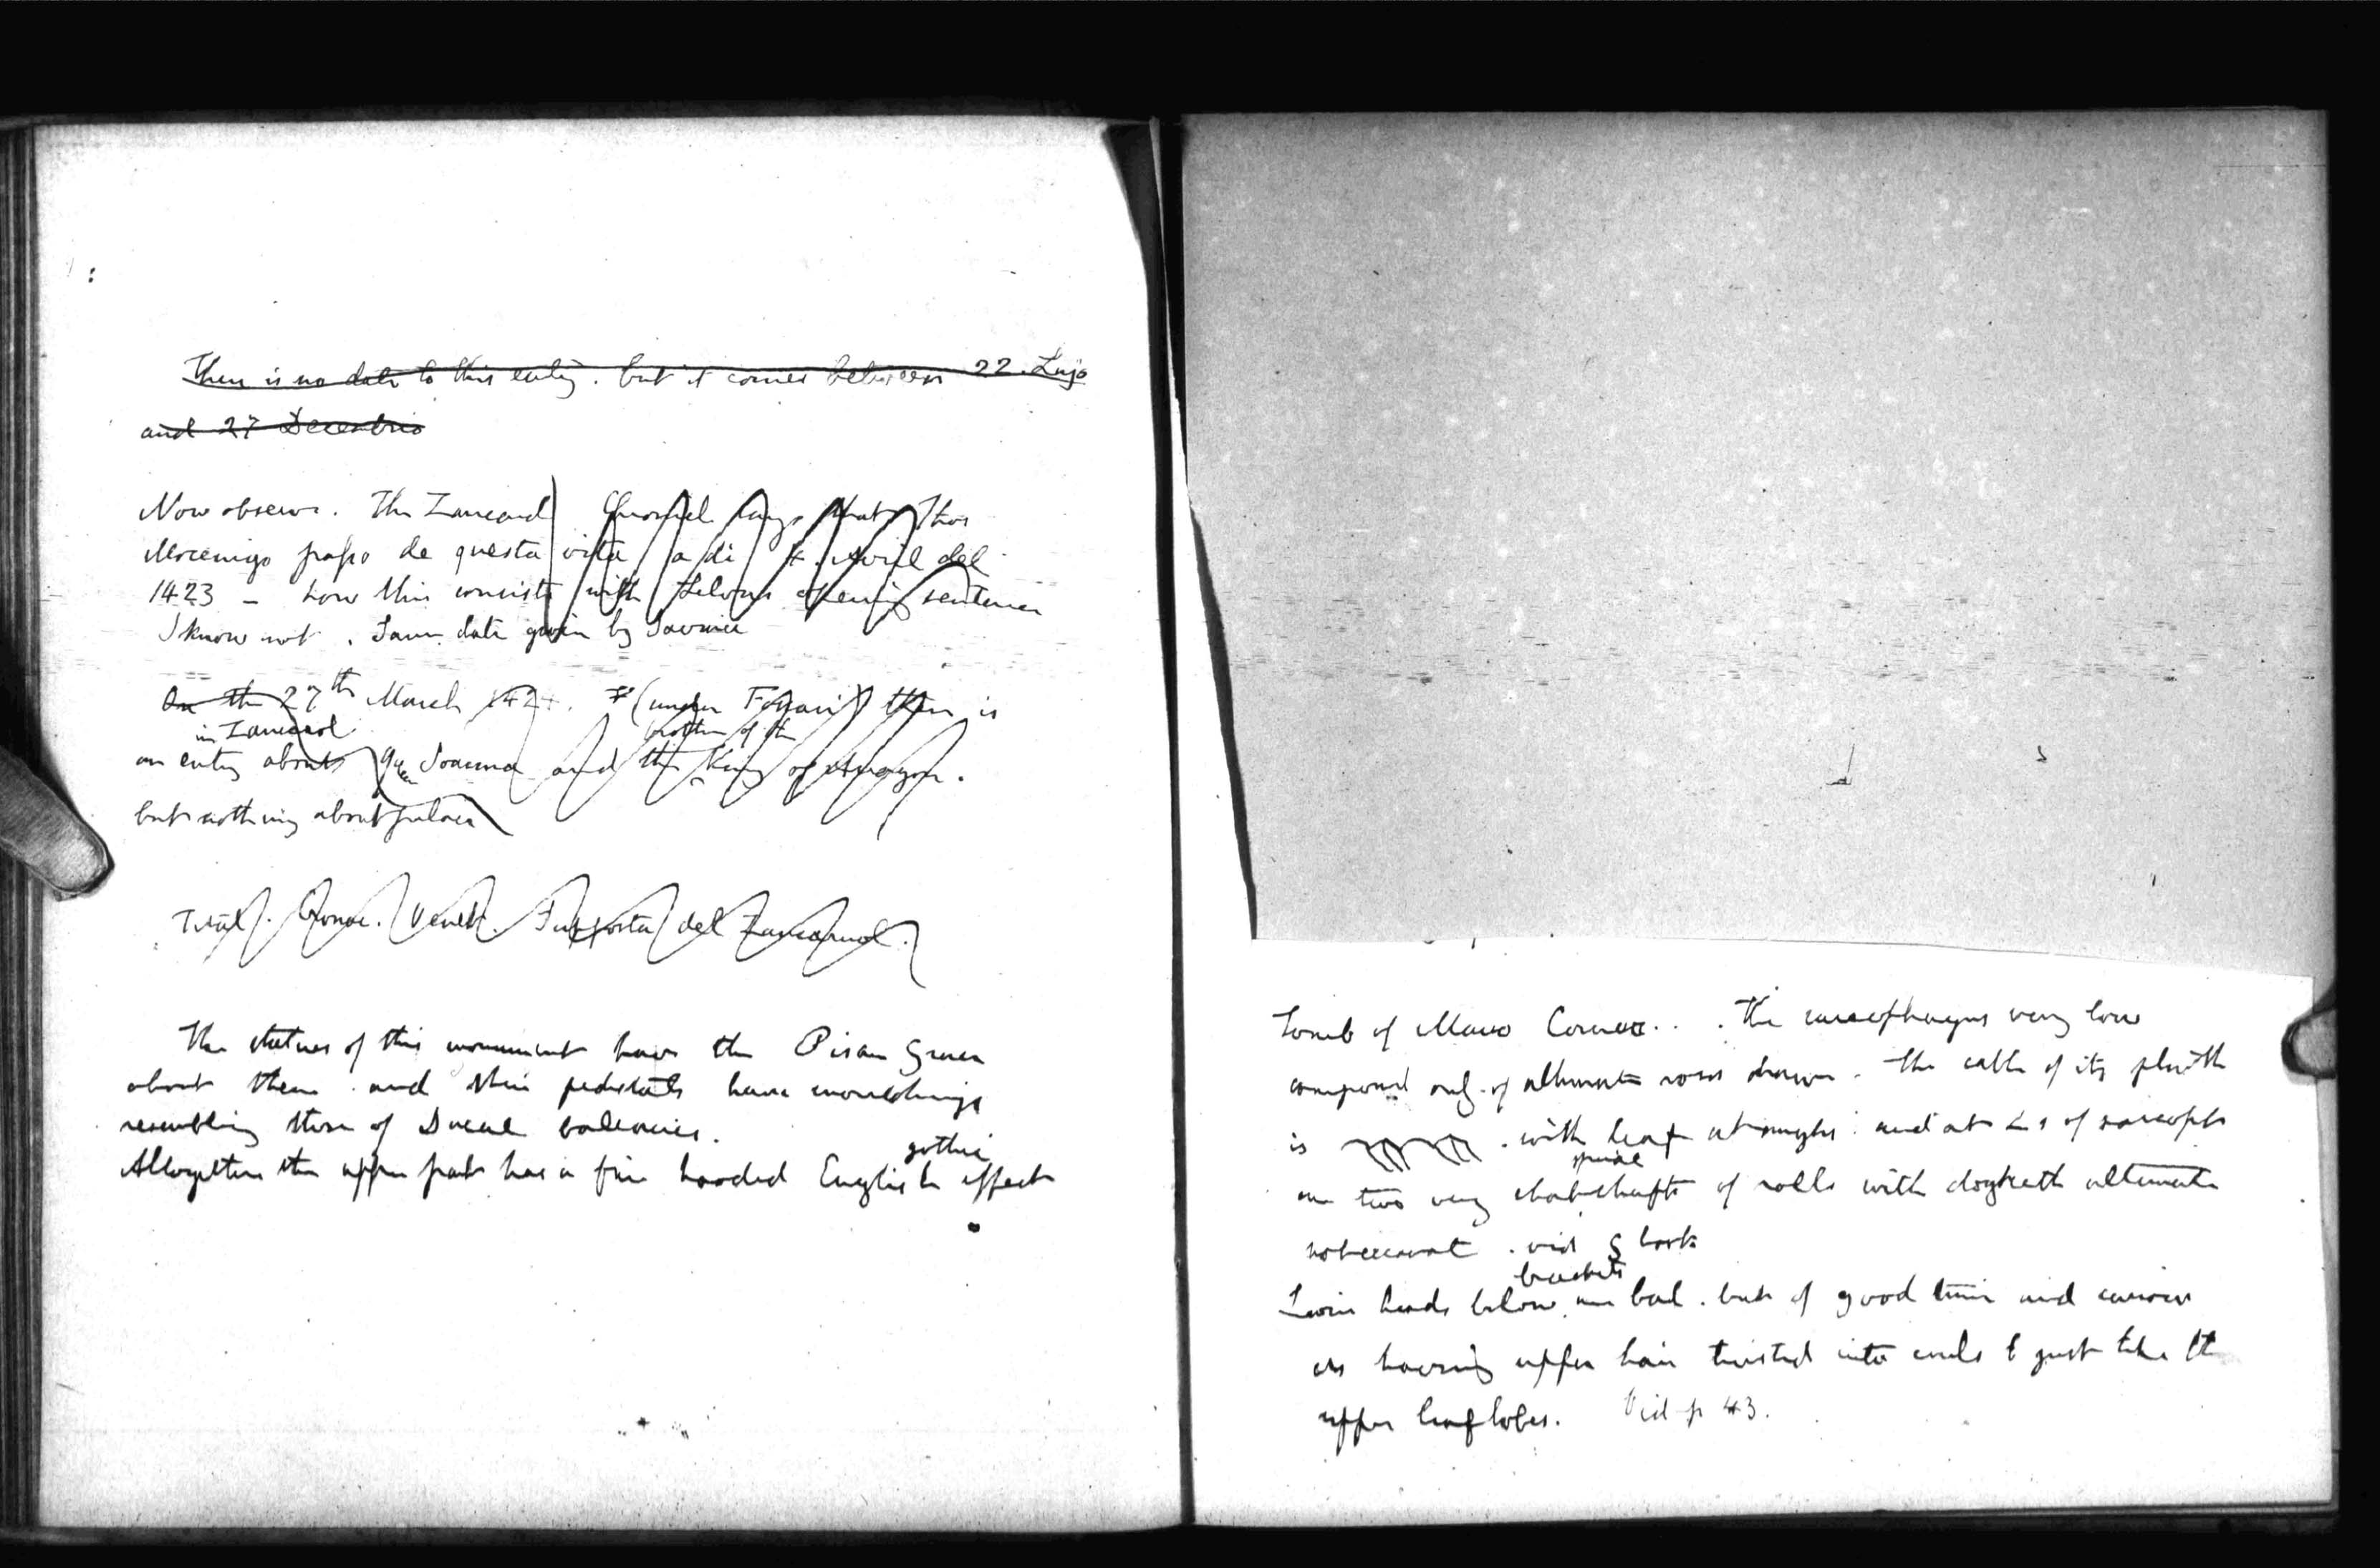 There is no date to this entry. but it comes between 22. Lujo
and 27 Decembrio
Now observe. The Zancarol Chronicle says that Thos
Mocenigo passo de questa vita a di 4. Avril del
1423 – how this consists with opening sentence
I know not. Same date given by Savina
On the 27th March 142 (under Foscari) there is
in Zancarol brother of the
an entry about Queen Joanna and the King of Aragon.
but nothing about palace
Titial. Cronac. Venet. Supposta del Zancaruol.
The statues of this monument have the Pisan grace
about them and their pedestals have mouldings
resembling those of Ducal balconies.
gothic
Altogether the upper part has a fine hooded English effect
Tomb of Marco Corner. . . The sarcophagus very low
composed only of alternate roses drawn. The cable of its plinth
is . with leaf at angles: and at ∠s of sarcoph
spiral
are two very short shafts of rolls with dogteeth alternate
not excavat. vid G book
brackets
Lion heads below are bad. but of good time and curious
as having upper hair twisted into curls just like the
upper leaf lobes. Vid p 43.